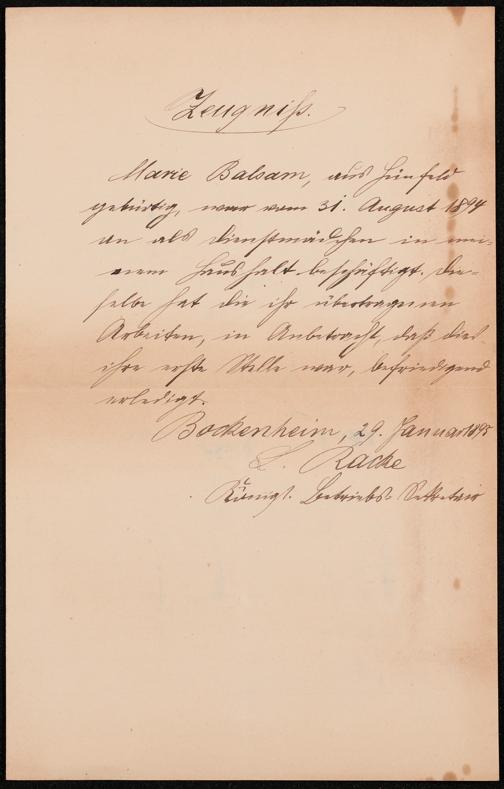 Zeugniß.
Marie Balsam, aus Hünfeld
gebürtig, war vom 31. August 1894
an als Dienstmädchen in mei-
nem Haushalt beschäftigt. Die-
selbe hat die ihr übertragenen
Arbeiten, in Anbetracht, daß dies
ihre erste Stelle war, befriedigend
erledigt.
Bockenheim, 29. Januar 1895
Racke
Königl. Betriebs-Sekretair